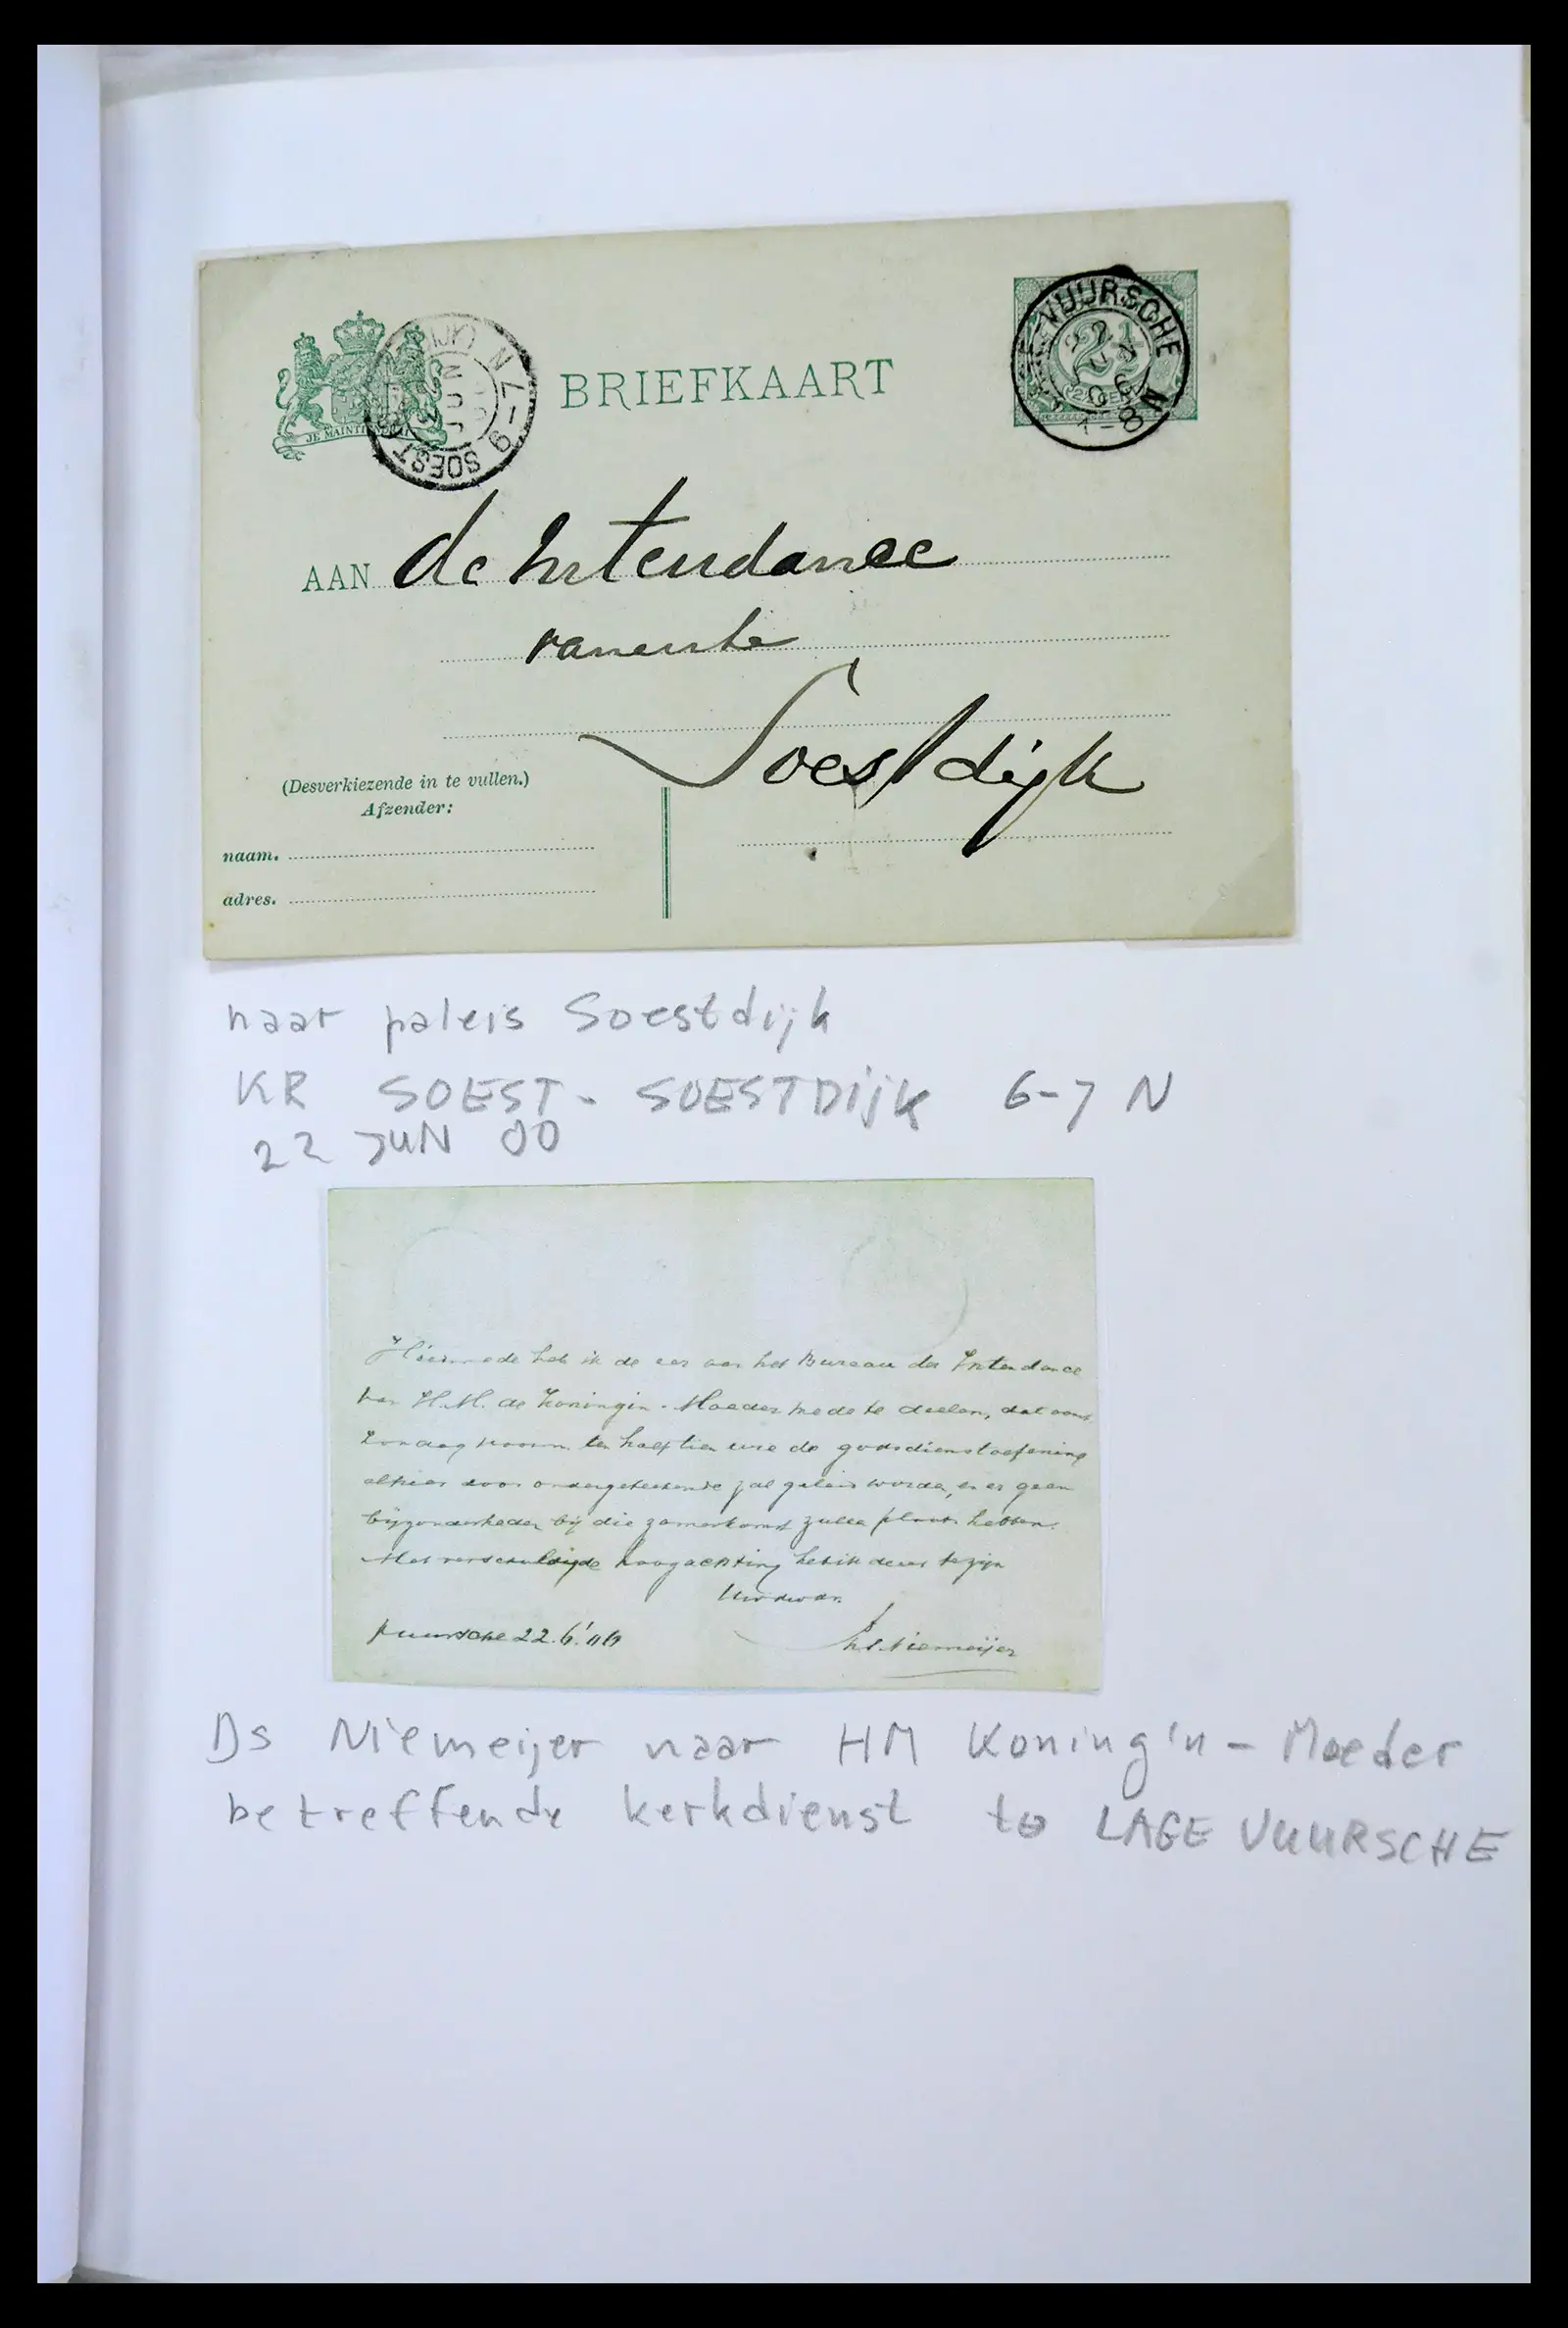 BRIEFKAART
JE MAINTIENDRAI
SOEST
6-7N
JUN
VUURSCHE
22 JUN 06
7-8N
2½
AAN de Intendance
Soestdijk
(Desverkiezende in te vullen.)
Afzender:
naam.
adres.
naar paleis Soestdijk
KR SOEST - SOESTDIJK 6-7 N
22 JUN 00
Hiermede heb ik de eer aan het Bureau der Intendance
van H.M. de Koningin-Moeder mede te deelen, dat aanst.
Zondag voorm. ten half tien ure de godsdienstoefening
alhier door ondergeteekende zal geleid worden, en er geen
bijzonderheden bij die zamenkomst zullen plaats hebben.
Met verschuldigde hoogachting heb ik de eer te zijn
Uw dw. dr.
Vuursche 22.6.'06 Niemeijer
Ds Niemeijer naar HM Koningin-Moeder
betreffende kerkdienst te LAGE VUURSCHE